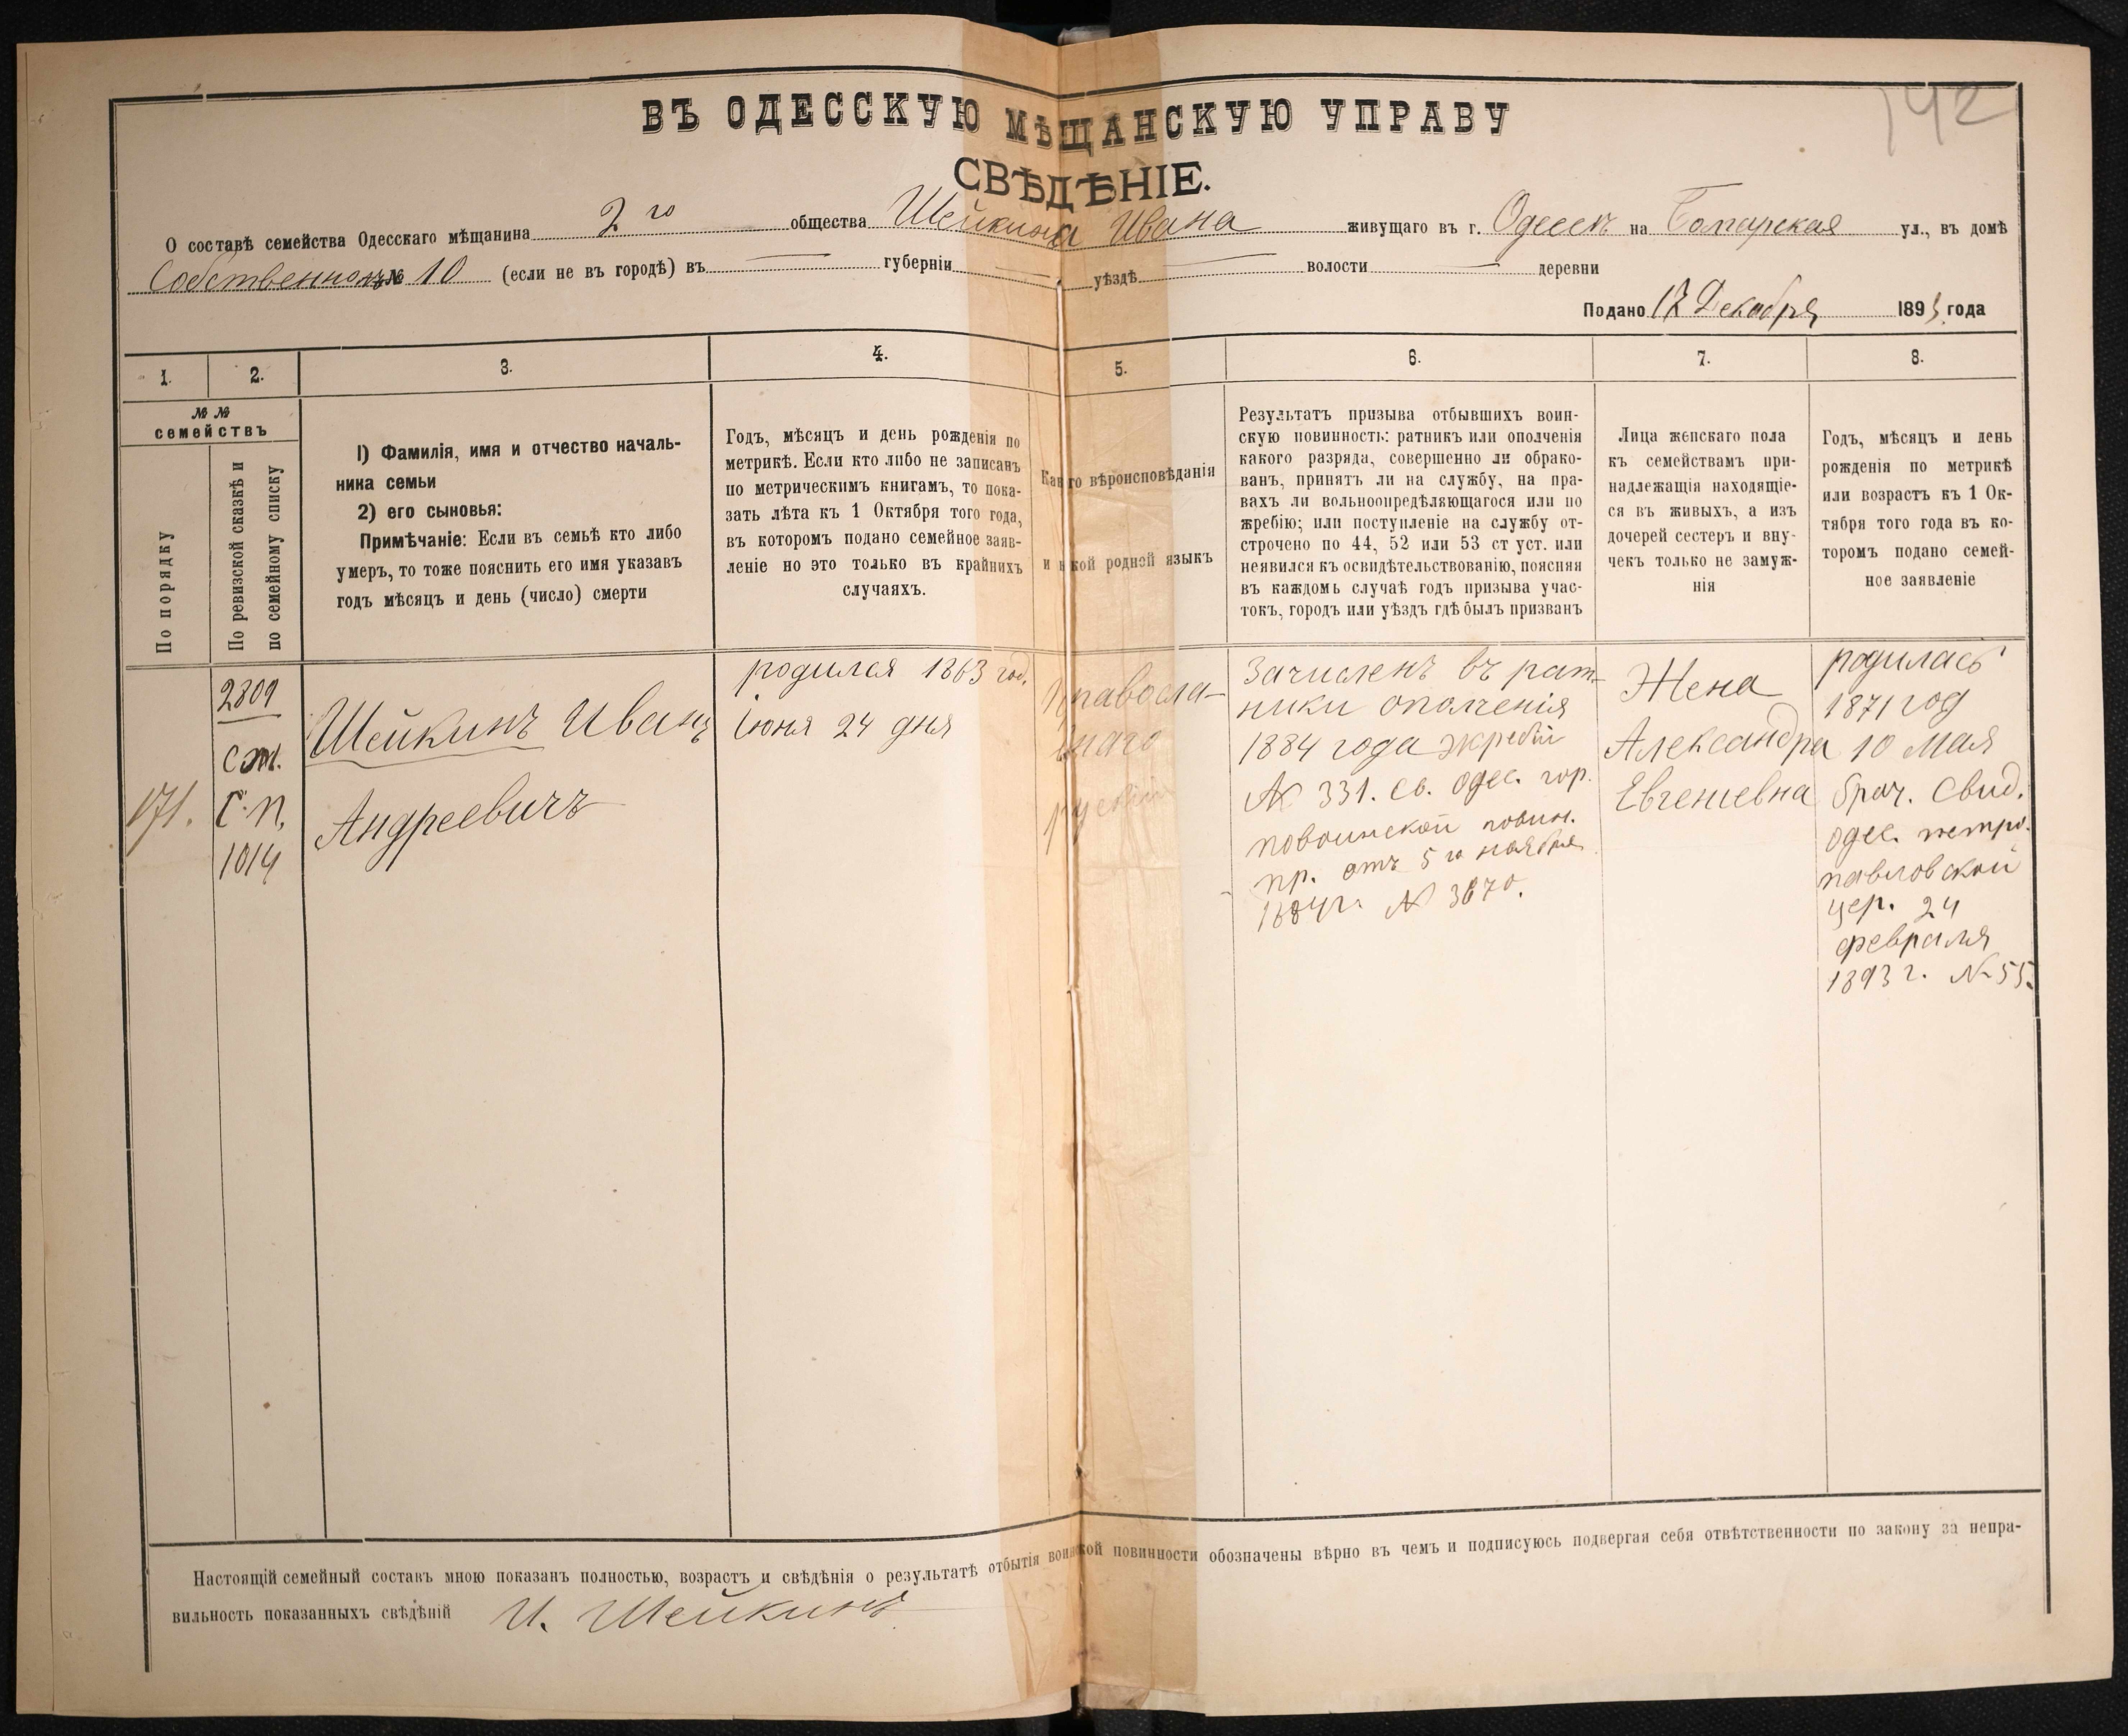 142
ВЪ ОДЕССКУЮ МѢЩАНСКУЮ УПРАВУ
СВѢДѢНІЕ.
О составѣ семейства Одесскаго мѣщанина 2 го общества Шейкина Ивана живущаго въ г. Одессѣ на Болгарская ул., въ домѣ
Собственномъ № 10 (если не въ городѣ) въ губерніи уѣздѣ волости деревни
Подано 17 Декабря 1893 года
1. 2. 3. 4. 5. 6. 7. 8.
№ №
семействъ
По порядку
По ревизской сказкѣ и
по семейному списку
1) Фамилія, имя и отчество началь-
ника семьи
2) его сыновья:
Примѣчаніе: Если въ семьѣ кто либо
умеръ, то тоже пояснить его имя указавъ
годъ мѣсяцъ и день (число) смерти
Годъ, мѣсяцъ и день рожденія по
метрикѣ. Если кто либо не записанъ
по метрическимъ книгамъ, то пока-
зать лѣта къ 1 Октября того года,
въ которомъ подано семейное заяв-
леніе но это только въ крайнихъ
случаяхъ.
Какого вѣроисповѣданія
и какой родной языкъ
Результатъ призыва отбывшихъ воин-
скую повинность: ратникъ или ополченія
какого разряда, совершенно ли обрако-
ванъ, принятъ ли на службу, на пра-
вахъ ли вольноопредѣляющагося или по
жребію; или поступленіе на службу от-
строчено по 44, 52 или 53 ст уст. или
неявился къ освидѣтельствованію, поясняя
въ каждомъ случаѣ годъ призыва учас-
токъ, городъ или уѣздъ гдѣ былъ призванъ
Лица женскаго пола
къ семействамъ при-
надлежащія находящіе-
ся въ живыхъ, а изъ
дочерей сестеръ и вну-
чекъ только не замуж-
нія
Годъ, мѣсяцъ и день
рожденія по метрикѣ
или возрастъ къ 1 Ок-
тября того года въ ко-
торомъ подано семей-
ное заявленіе
171.
2809
ст.
С. П.
1014
Шейкинъ Иванъ
Андреевичъ
родился 1863 год.
Іюня 24 дня
Правосла-
внаго
русскій
Зачисленъ въ рат-
ники ополченія
1884 года жребій
№ 331. Св. Одес. гор.
повоинской повин.
пр. отъ 5 го ноября
1884 г. № 3670.
Жена
Александра
Евгеніевна
родилась
1871 год
10 Мая
брач. Свид.
Одес. петро-
павловской
цер. 24
февраля
1893 г. № 55.
Настоящій семейный составъ мною показанъ полностью, возрастъ и свѣдѣнія о результатѣ отбытія воинской повинности обозначены вѣрно въ чемъ и подписуюсь подвергая себя отвѣтственности по закону за непра-
вильность показанныхъ свѣдѣній И. Шейкинъ